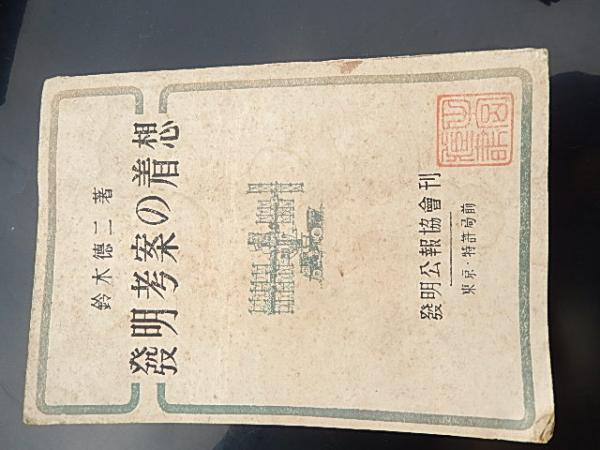 鈴木德二著
發明考案の着想
發明公報協會刊
東京・特許局前